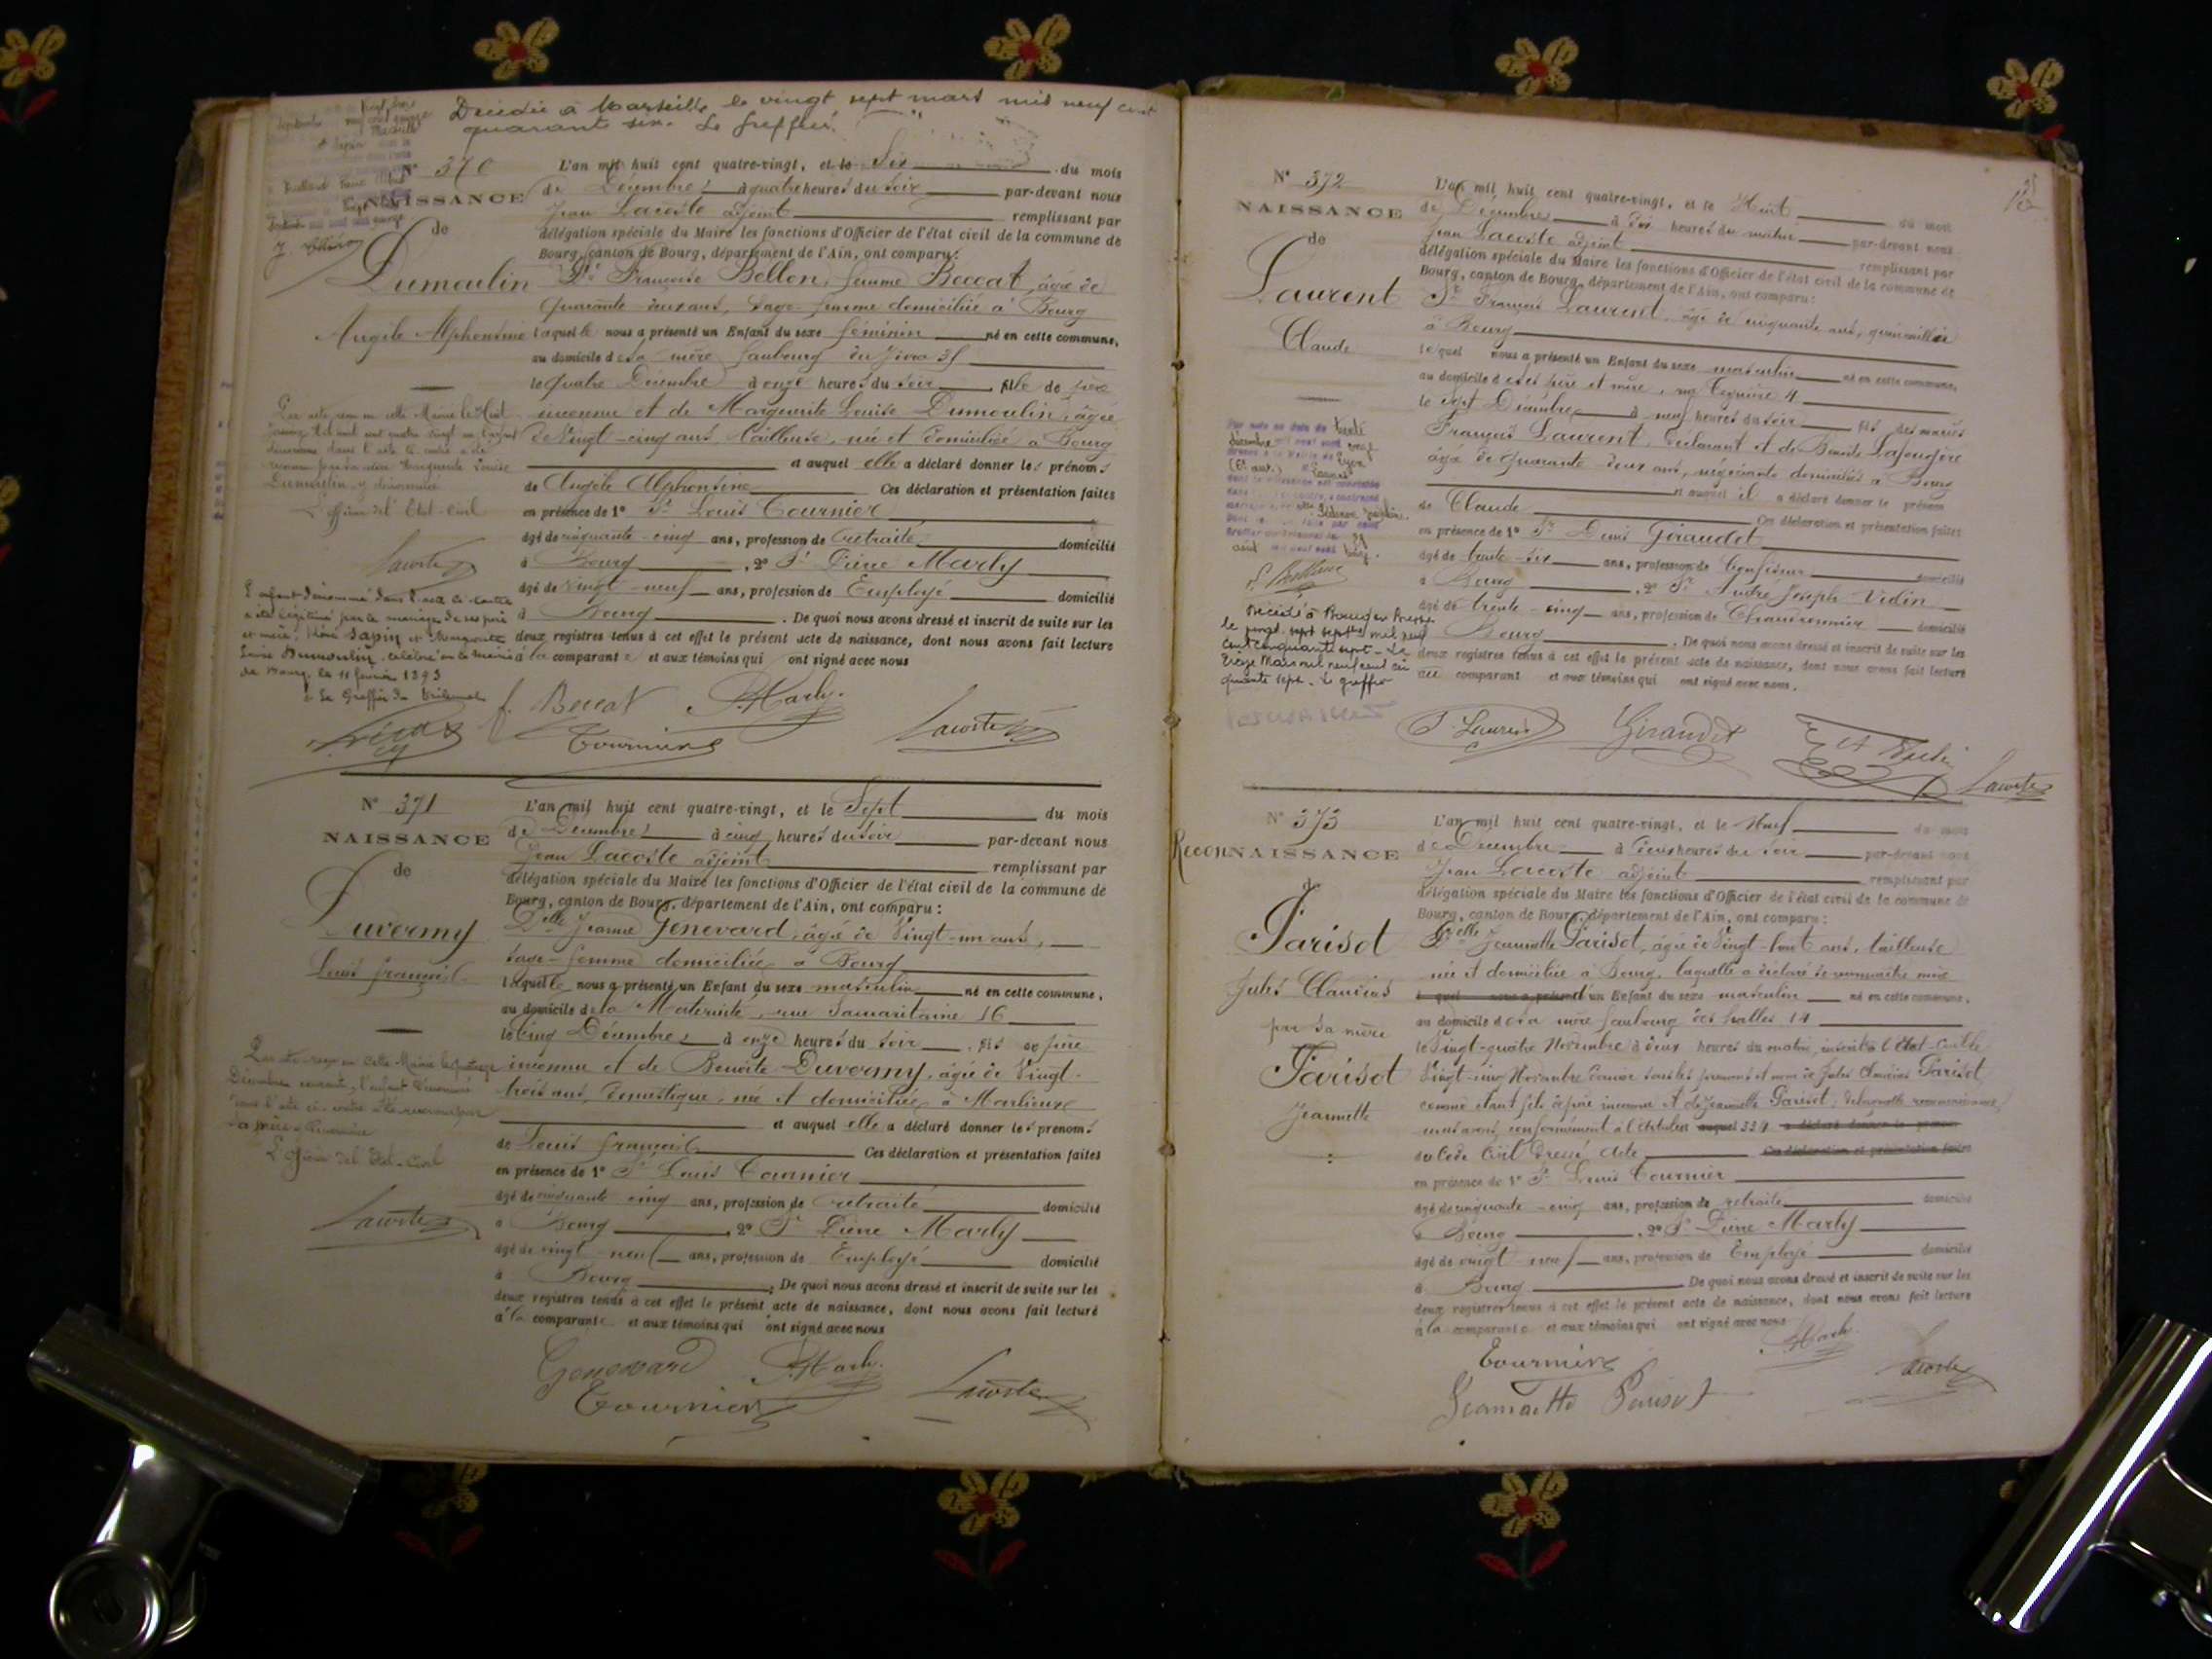 Décédée à Marseille le vingt sept mars mil neuf cent
quarante six. Le Greffier.
N° 370
NAISSANCE
de
Dumoulin
Angèle Alphonsine
L'an mil huit cent quatre-vingt, et le Six du mois
de Décembre à quatre heures du soir par-devant nous
Jean Lacoste adjoint remplissant par
délégation spéciale du Maire les fonctions d'Officier de l'état civil de la commune de
Bourg, canton de Bourg, département de l'Ain, ont comparu:
De Françoise Bellon, femme Beccat, âgée de
quarante deux ans, sage-femme domiciliée à Bourg
laquelle nous a présenté un Enfant du sexe féminin né en cette commune,
au domicile de sa mère faubourg du Jura
le quatre Décembre à onze heures du soir, fille de père
inconnu et de Marguerite Louise Dumoulin, âgée
de Vingt-cinq ans, tailleuse, née et domiciliée à Bourg
et auquel elle a déclaré donner les prénoms
de Angèle Alphonsine Ces déclaration et présentation faites
en présence de 1° Sr Louis Tournier
âgé de cinquante-cinq ans, profession de retraité domicilié
à Bourg, 2° Sr Pierre Marly
âgé de vingt-neuf ans, profession de Employé domicilié
à Bourg. De quoi nous avons dressé et inscrit de suite sur les
deux registres tenus à cet effet le présent acte de naissance, dont nous avons fait lecture
à la comparante et aux témoins qui ont signé avec nous
Par acte reçu en cette Mairie le Huit
Janvier Mil huit cent quatre vingt un l'enfant
dénommé dans l'acte ci-contre a été
reconnu par sa mère Marguerite Louise
Dumoulin y dénommée
L'Officier de l'Etat-Civil
Lacoste
L'enfant dénommé dans l'acte ci-contre
a été légitimé par le mariage de ses père
et mère, Sapin et Marguerite
Louise Dumoulin, célébré en la mairie
de Bourg le 11 février 1893
Le Greffier du Tribunal
f. Beccat P. Marly.
Tournier Lacoste
N° 371
NAISSANCE
de
Duvermy
Louis François
L'an mil huit cent quatre-vingt, et le Sept du mois
de Décembre à cinq heures du soir par-devant nous
Jean Lacoste adjoint remplissant par
délégation spéciale du Maire les fonctions d'Officier de l'état civil de la commune de
Bourg, canton de Bourg, département de l'Ain, ont comparu:
Delle Jeanne Genevard, âgée de Vingt-un ans,
sage-femme domiciliée à Bourg
laquelle nous a présenté un Enfant du sexe masculin né en cette commune,
au domicile de la Maternité, rue Samaritaine 16
le cinq Décembre à onze heures du soir, fils de père
inconnu et de Benoîte Duvermy, âgée de Vingt-
trois ans, domestique, née et domiciliée à Marlieux
et auquel elle a déclaré donner les prénoms
de Louis François Ces déclaration et présentation faites
en présence de 1° Sr Louis Tournier
âgé de cinquante cinq ans, profession de retraité domicilié
à Bourg, 2° Sr Pierre Marly
âgé de vingt-neuf ans, profession de Employé domicilié
à Bourg. De quoi nous avons dressé et inscrit de suite sur les
deux registres tenus à cet effet le présent acte de naissance, dont nous avons fait lecture
à la comparante et aux témoins qui ont signé avec nous
Par acte reçu en cette Mairie le
Décembre courant, l'enfant dénommé
dans l'acte ci-contre a été reconnu par
sa mère y dénommée
L'Officier de l'Etat-Civil
Lacoste
Genevard P. Marly.
Tournier Lacoste
N° 372
NAISSANCE
de
Laurent
Claude
L'an mil huit cent quatre-vingt, et le Huit du mois
de Décembre à dix heures du matin par-devant nous
Jean Lacoste adjoint remplissant par
délégation spéciale du Maire les fonctions d'Officier de l'état civil de la commune de
Bourg, canton de Bourg, département de l'Ain, ont comparu:
Sr François Laurent, âgé de cinquante ans,
à Bourg
lequel nous a présenté un Enfant du sexe masculin né en cette commune,
au domicile de ses père et mère, rue Teynière 4
le sept Décembre à neuf heures du soir, fils des mariés
François Laurent, déclarant et de Benoîte Lafougère
âgée de quarante-deux ans, négociante domiciliés à Bourg
et auquel il a déclaré donner le prénom
de Claude Ces déclaration et présentation faites
en présence de 1° Sr Denis Giraudet
âgé de trente-six ans, profession de Confiseur domicilié
à Bourg, 2° Sr André Joseph Vidin
âgé de trente-cinq ans, profession de Chaudronnier domicilié
à Bourg. De quoi nous avons dressé et inscrit de suite sur les
deux registres tenus à cet effet le présent acte de naissance, dont nous avons fait lecture
au comparant et aux témoins qui ont signé avec nous.
Décédé à Bourg en Bresse
le vingt sept septbre mil neuf
cent cinquante sept. Le
Treize Mars mil neuf cent cin
quante sept. Le greffier
F. Laurent Giraudet
Lacoste
N° 373
ReconNAISSANCE
de
Parisot
Jules Claudius
par sa mère
Parisot
Jeannette
L'an mil huit cent quatre-vingt, et le Neuf du mois
de Décembre à trois heures du soir par-devant nous
Jean Lacoste adjoint remplissant par
délégation spéciale du Maire les fonctions d'Officier de l'état civil de la commune de
Bourg, canton de Bourg, département de l'Ain, ont comparu:
Delle Jeannette Parisot, âgée de Vingt-huit ans, tailleuse
née et domiciliée à Bourg, laquelle a déclaré se reconnaître mère
lequel nous a présenté d'un Enfant du sexe masculin né en cette commune,
au domicile de sa mère faubourg des halles 14
le Vingt-quatre Novembre à deux heures du matin, inscrit à l'Etat-Civil le
Vingt-cinq Novembre dernier sous les prénoms et nom de Jules Claudius Parisot
comme étant fils de père inconnu et de Jeannette Parisot; de laquelle reconnaissance,
nous avons, conformément à l'article auquel 334 a déclaré donner le prénom
du Code Civil dressé acte Ces déclaration et présentation faites
en présence de 1° Sr Louis Tournier
âgé de cinquante-cinq ans, profession de retraité domicilié
à Bourg, 2° Sr Pierre Marly
âgé de vingt-neuf ans, profession de Employé domicilié
à Bourg. De quoi nous avons dressé et inscrit de suite sur les
deux registres tenus à cet effet le présent acte de naissance, dont nous avons fait lecture
à la comparante et aux témoins qui ont signé avec nous
P. Marly
Tournier Lacoste
Jeannette Parisot